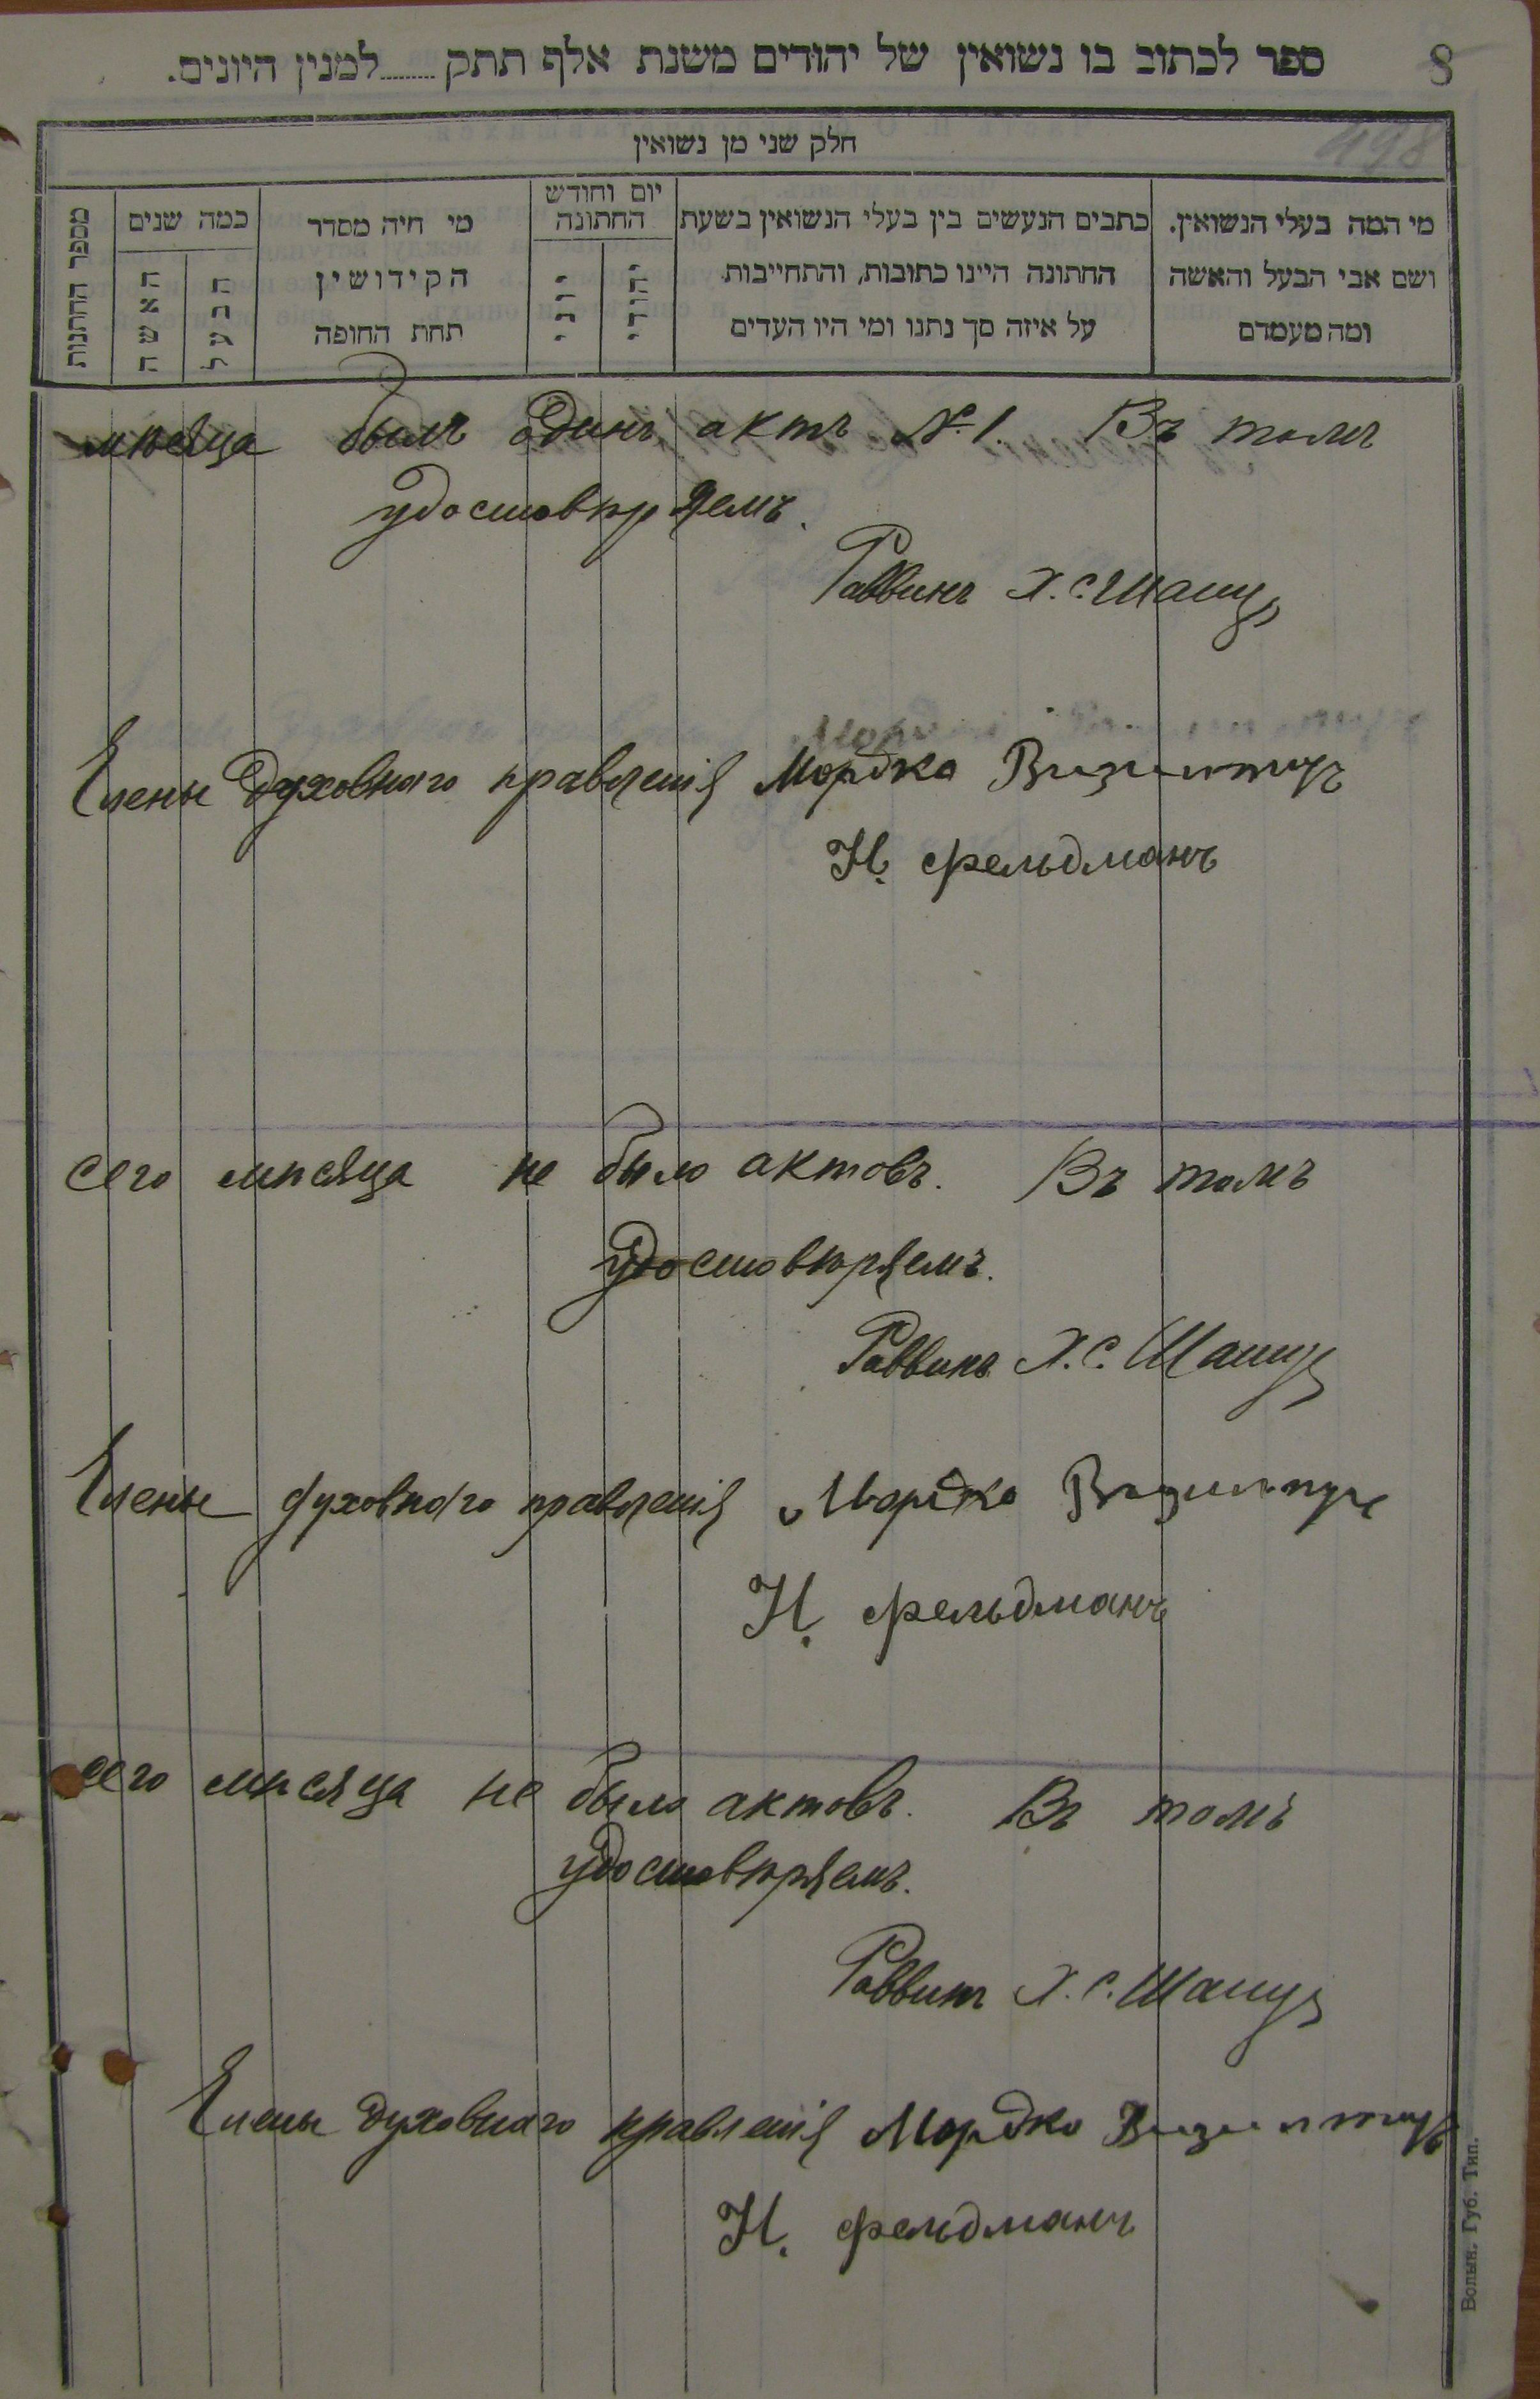 8
ספר לכתוב בו נשואין של יהודים משנת אלף תתק........למנין היונים.
498
חלק שני מן נשואין
מי המה בעלי הנשואין.
ושם אבי הבעל והאשה
ומה מעמדם
כתבים הנעשים בין בעלי הנשואין בשעת
החתונה היינו כתובות, והתחייבות
על איזה סך נתנו ומי היו העדים
יום וחודש
החתונה
יהודי
יוני
מי חיה מסדר
הקידושין
תחת החופה
כמה שנים
הבעל
האשה
מספר החתנות
мѣсяца былъ одинъ актъ №1. Въ томъ
удостовѣряемъ.
Раввинъ Х.С.
Члены духовнаго правленія Мордко
Н. Фельдманъ
сего мѣсяца не было актовъ. Въ томъ
удостовѣряемъ.
Раввинъ Х.С.
Члены духовнаго правленія Мордко
Н. Фельдманъ
сего мѣсяца не было актовъ. Въ томъ
удостовѣряемъ.
Раввинъ Х.С.
Члены духовнаго правленія Мордко
Н. Фельдманъ
Волын. Губ. Тип.